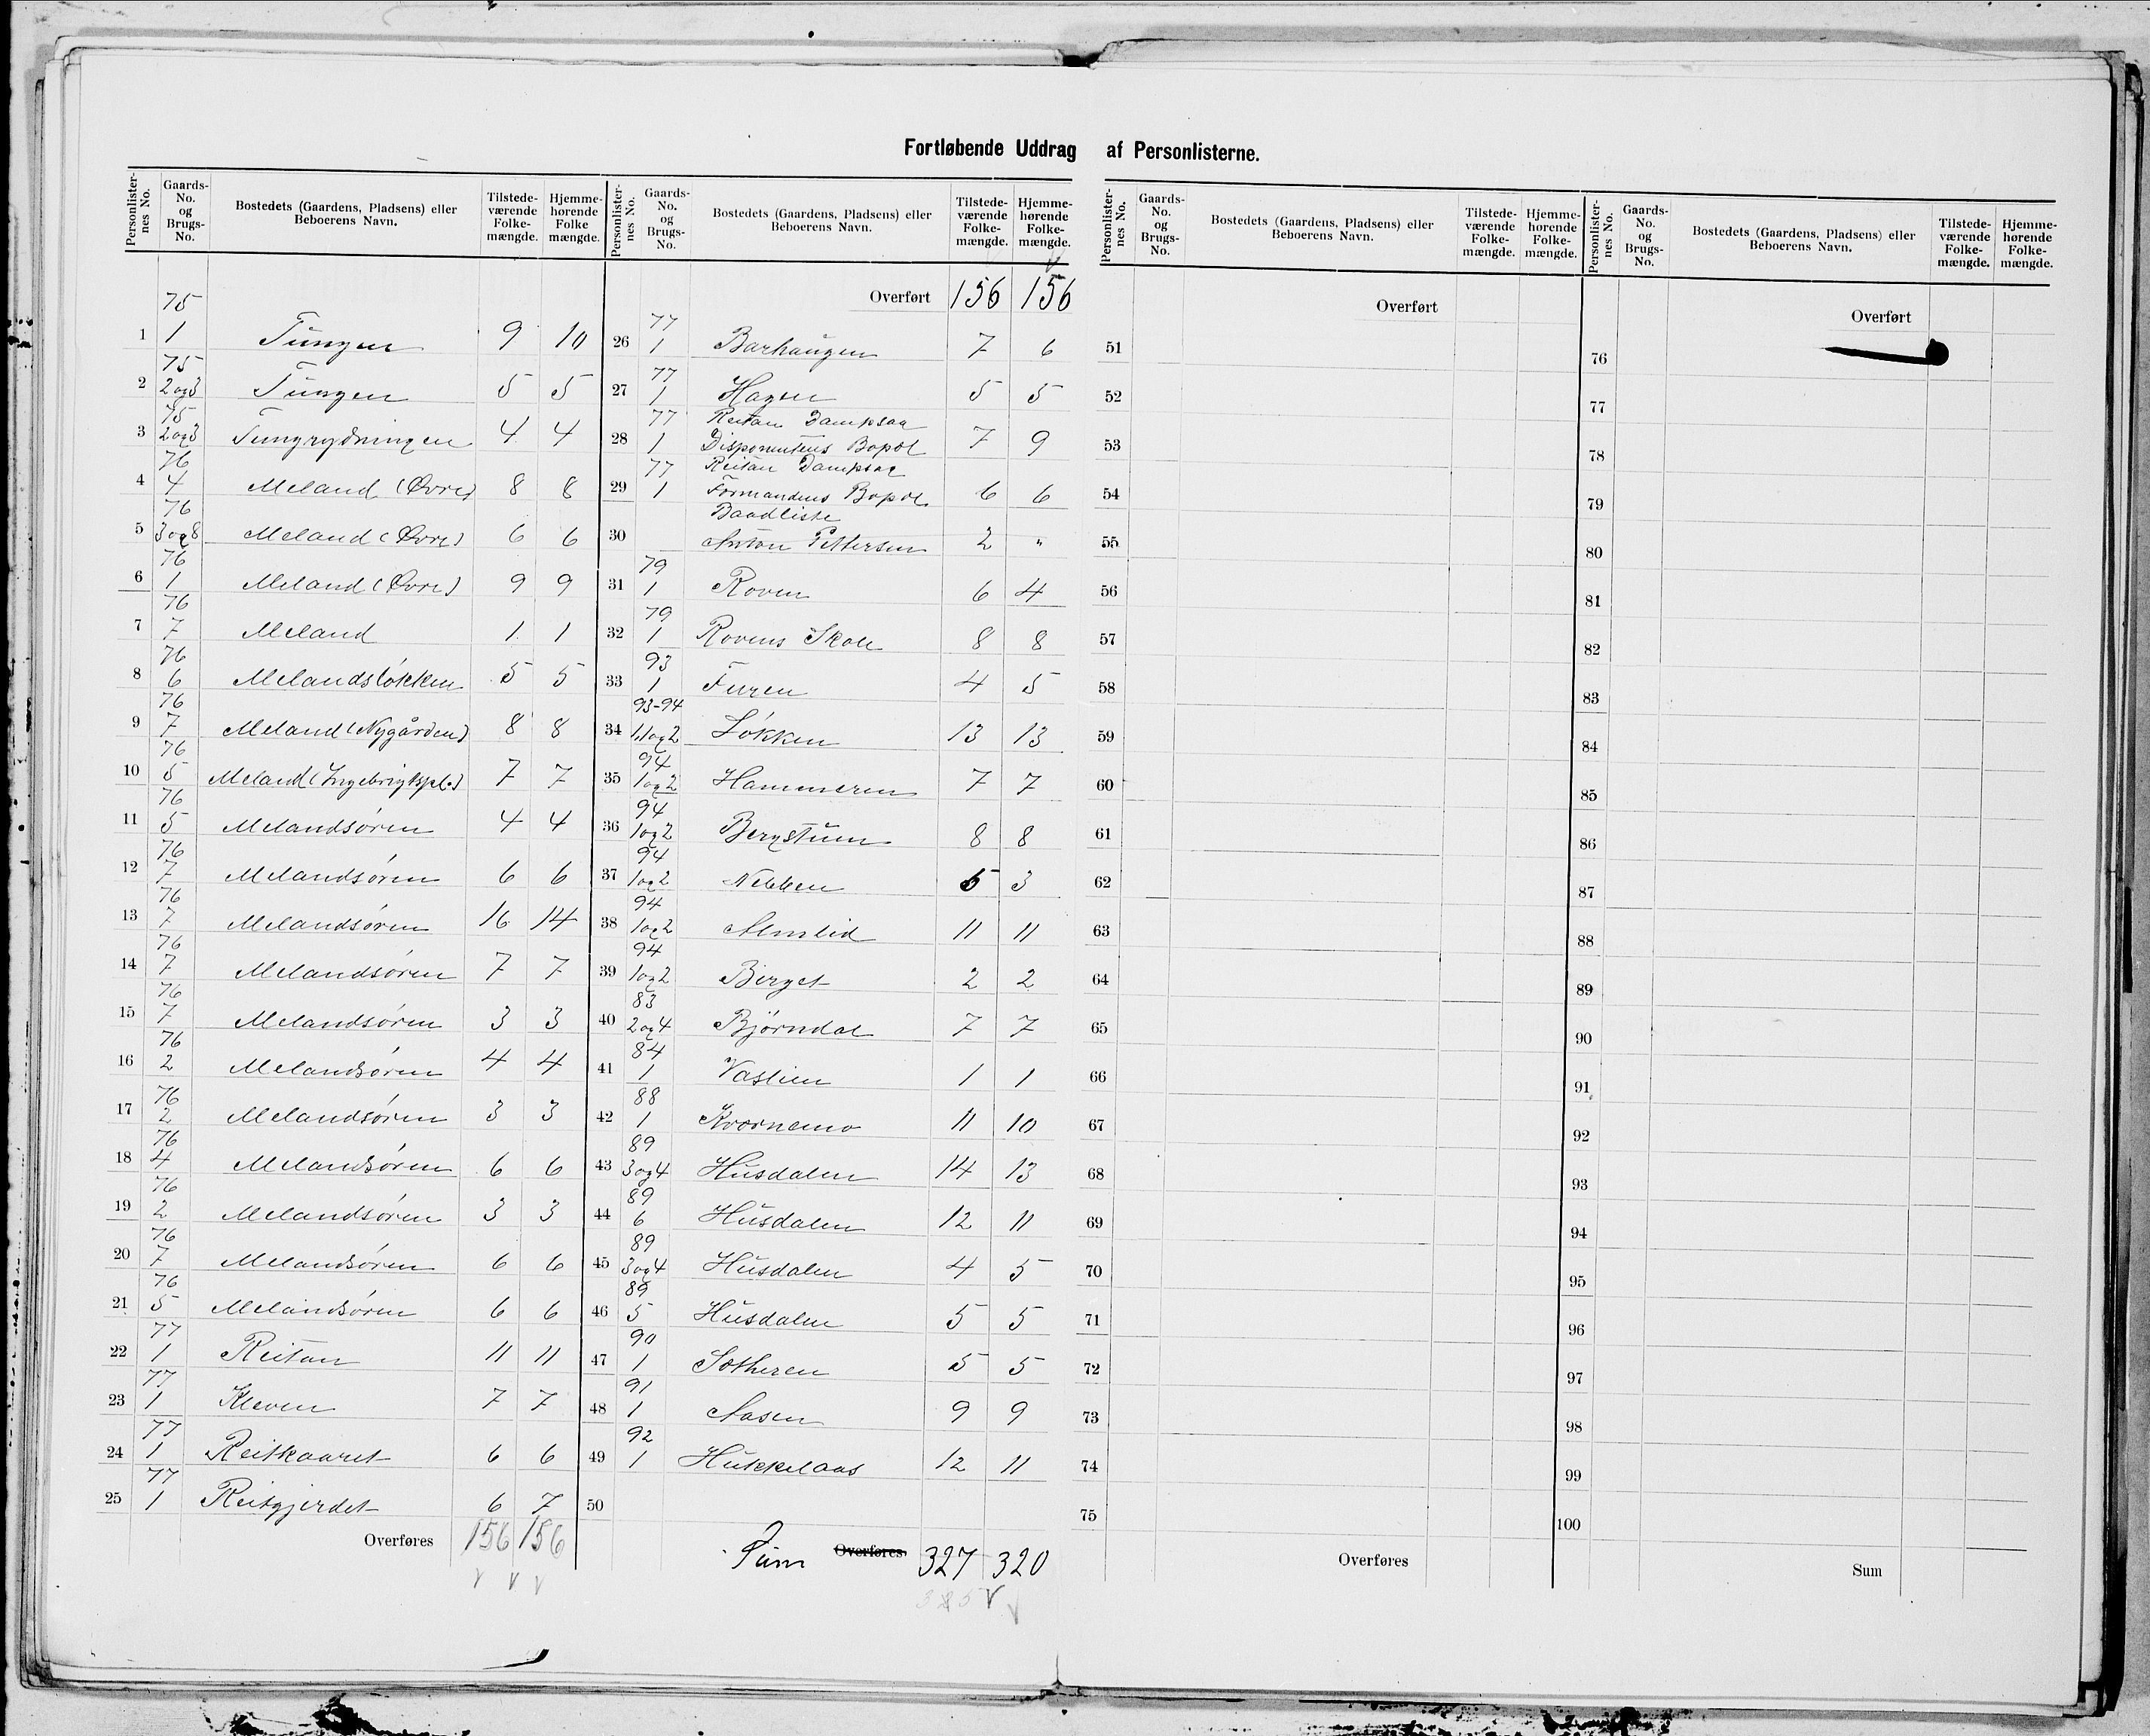 Fortløbende Uddrag af Personlisterne.
Personlisternes No. Gaards-No. og Brugs-No. Bostedets (Gaardens, Pladsens) eller Beboerens Navn. Tilstedeværende Folkemængde. Hjemmehørende Folke mængde.
75
1 1 Tungen 9 10
75
2 2og3 Tungen 5 5
75
3 2og3 Tungrydningen 4 4
76
4 4 Meland (Øvre) 8 8
76
5 3og8 Meland (Øvre) 6 6
76
6 1 Meland (Øvre) 9 9
76
7 7 Meland 1 1
76
8 6 Melandsløkken 5 5
76
9 7 Meland (Nygården) 8 8
76
10 5 Meland (Ingebrigtspl.) 7 7
76
11 5 Melandsøren 4 4
76
12 7 Melandsøren 6 6
76
13 7 Melandsøren 16 14
76
14 7 Melandsøren 7 7
76
15 7 Melandsøren 3 3
76
16 2 Melandsøren 4 4
76
17 2 Melandsøren 3 3
76
18 4 Melandsøren 6 6
76
19 2 Melandsøren 3 3
76
20 7 Melandsøren 6 6
76
21 5 Melandsøren 6 6
77
22 1 Reitan 11 11
77
23 1 Kleven 7 7
77
24 1 Reitkaaret 6 6
77
25 1 Reitgjerdet 6 7
Overføres 156 156
Personlisternes No. Gaards-No. og Brugs-No. Bostedets (Gaardens, Pladsens) eller Beboerens Navn. Tilstedeværende Folkemængde. Hjemmehørende Folkemængde.
Overført 156 156
77
26 1 Barhaugen 7 6
77
27 1 Hagen 5 5
77 Reitan Dampsag
28 1 Disponentens Bopæl 7 9
77 Reitan Dampsag
29 1 Formandens Bopæl 6 6
Baadliste
30 Anton Pettersen 2 "
79
31 1 Roven 6 4
79
32 1 Rovens Skole 8 8
93
33 1 Furen 4 5
93-94
34 1 1og2 Løkken 13 13
94
35 1og2 Hammeren 7 7
94
36 1og2 Bergstuen 8 8
94
37 1og2 Nebben 5 3
94
38 1og2 Almlid 11 11
94
39 1og2 Berget 2 2
83
40 2og4 Bjørndal 7 7
84
41 1 Vaslien 1 1
88
42 1 Kvernemo 11 10
89
43 3og4 Husdalen 14 13
89
44 6 Husdalen 12 11
89
45 3og4 Husdalen 4 5
89
46 5 Husdalen 5 5
90
47 1 Sætheren 5 5
91
48 1 Aasen 9 9
92
49 1 Hukkelaas 12 11
50
Sum Overføres 327 320
325
Personlisternes No. Gaards-No. og Brugs-No. Bostedets (Gaardens, Pladsens) eller Beboerens Navn. Tilstedeværende Folkemængde. Hjemmehørende Folkemængde.
Overført
51
52
53
54
55
56
57
58
59
60
61
62
63
64
65
66
67
68
69
70
71
72
73
74
75
Overføres
Personlisternes No. Gaards-No. og Brugs-No. Bostedets (Gaardens, Pladsens) eller Beboerens Navn. Tilstedeværende Folkemængde. Hjemmehørende Folkemængde.
Overført
76
77
78
79
80
81
82
83
84
85
86
87
88
89
90
91
92
93
94
95
96
97
98
99
100
Sum